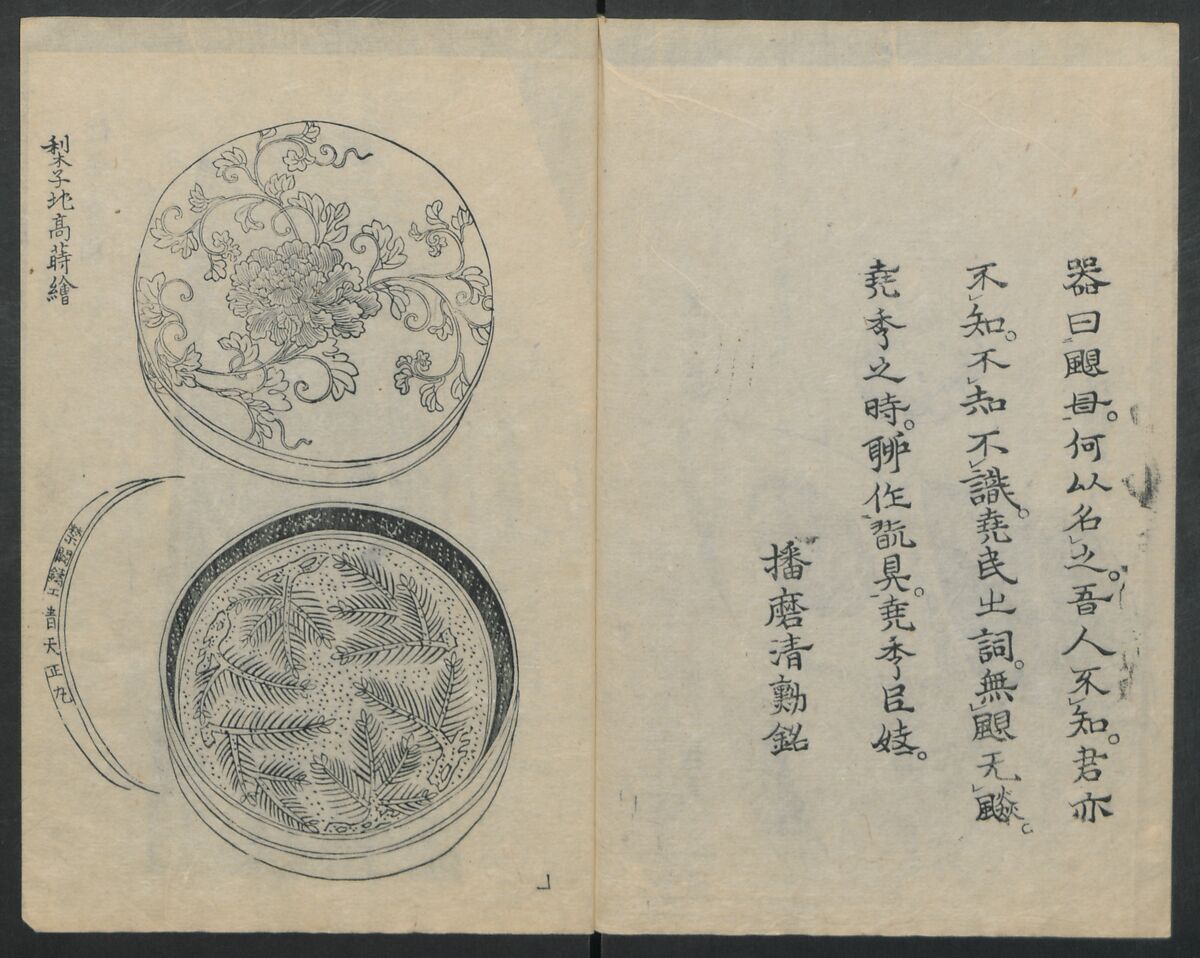 器曰颶母。何以名之。吾人不知。君亦
不知。不知不識。堯民之詞。無颶无飈。
堯季之時。聊作翫具。堯季臣妓。
播磨清勳銘
梨子地高蒔繪
青天正九